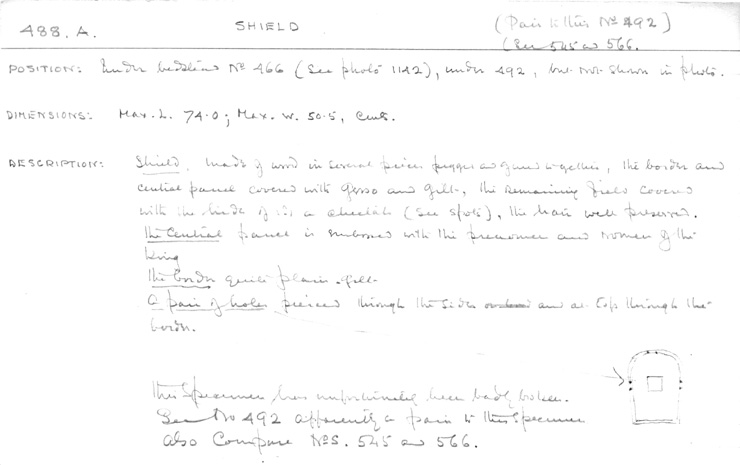 488. A. SHIELD (Pair to this Nº 492)
(See 545 and 566.
POSITION: Under bedstead Nº 466 (See photo 1142), under 492, but not shown in photo.
DIMENSIONS: Max. L. 74.0; Max. W. 50.5, Cents.
DESCRIPTION: Shield. Made of wood in several pieces pegged and glued together, the border and
central panel covered with Gesso and Gilt, the remaining field covered
with the hide of a cheetah (See spots), the hair well preserved.
The Central panel is embossed with the prenomen and nomen of the
King
The Border quite plain - gilt
A pair of holes pierced through the sides and at top through the
border.
This Specimen has unfortunately been badly broken.
See No 492 apparently a pair to this Specimen
also Compare Nos. 545 and 566.